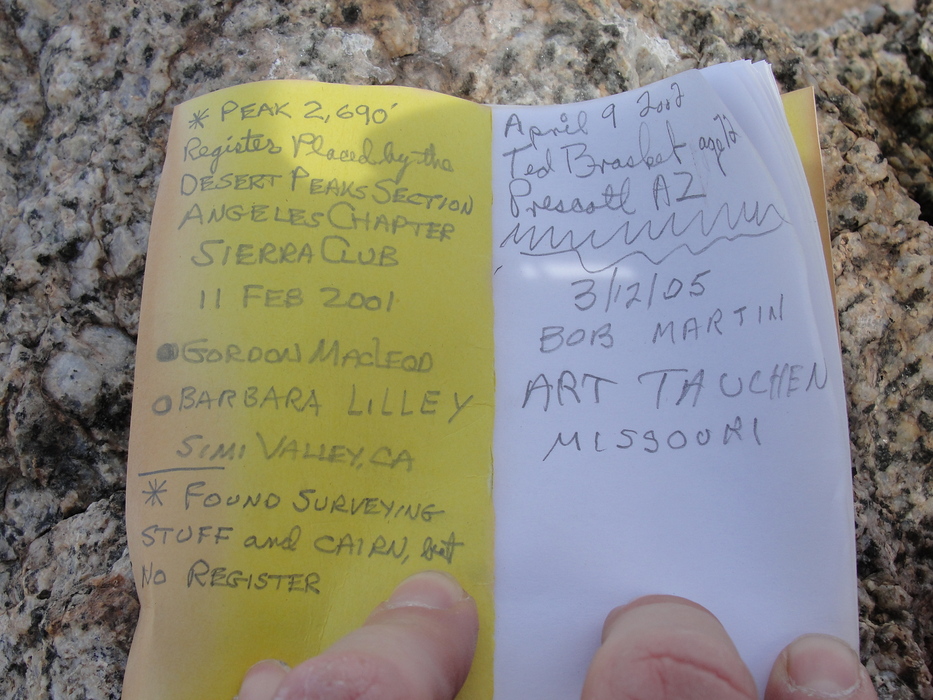 * PEAK 2,690'
Register Placed by the
DESERT PEAKS SECTION
ANGELES CHAPTER
SIERRA CLUB
11 FEB 2001
GORDON MACLEOD
BARBARA LILLEY
SIMI VALLEY, CA
* FOUND SURVEYING
STUFF and CAIRN, but
NO REGISTER
April 9 2002
Ted Brasket age 72
Prescott AZ
3/12/05
BOB MARTIN
ART TAUCHEN
MISSOURI